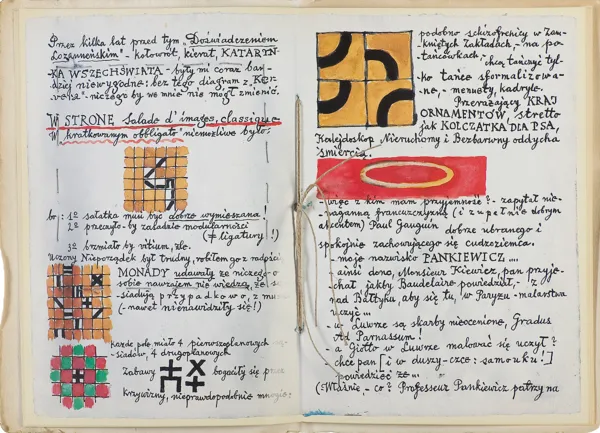 Przez kilka lat przed tym "Doświadczeniem
Lozanneńskim" - kołowrót, kierat, KATARYN-
KA WSZECHŚWIATA - były mi coraz bar-
dziej niewygodne: bez tego diagram z "Kor-
- niczego by we mnie nie mógł zmienić.
W STRONĘ Salade d'images, classique
W kratkowanym obbligato niemożliwe było:
bo: 1º sałatka musi być dobrze wymieszana!
2º przeczyło by zasadzie modularności
(≠ ligatury!)
3º brzmiało by vitium, źle.
Uczony Nieporządek był trudny, robiłem go z
MONADY udawały że niczego o
sobie nawzajem nie wiedzą, że s
siadują przypadkowo, z mu
(- nawet nienawidziły się!)
Każde pole miało 4 pierwszoplanowych
siadów, 4 drugoplanowych
Zabawy bogaciły się prze
Krzywizny, nieprawdopodobnie mnogie:
podobno schizofrenicy w Zam-
kniętych Zakładach, - na po-
tańcówkach, chcą tańczyć tyl-
ko tańce sformalizowa-
ne, - menuety, kadryle.
Przerażający KRAJ
ORNAMENTÓW, stretto
jak KOLCZATKA DLA PSA,
Kalejdoskop Nieruchomy i Bezbarwny oddycha
śmiercią.
- więc z kim mam przyjemność? - zapytał nie-
naganną francuszczyzną (i zupełnie dobrym
akcentem) Paul Gauguin dobrze ubranego i
spokojnie zachowującego się cudzoziemca.
- moje nazwisko PANKIEWICZ ...
- ainsi donc, Monsieur Kiewicz, pan przyje-
chał jakby Baudelaire powiedział, - z
nad Bałtyku, aby się tu, w Paryżu - malarstwa
uczyć ...
- w Luwrze są skarby nieocenione, Gradus
Ad Parnassum!
- a Giotto w Luwrze malować się uczył?
- chce pan [i w duszy-czce: samouku!]
powiedzieć że ...
(: Właśnie - co? Professeur Pankiewicz patrzy na